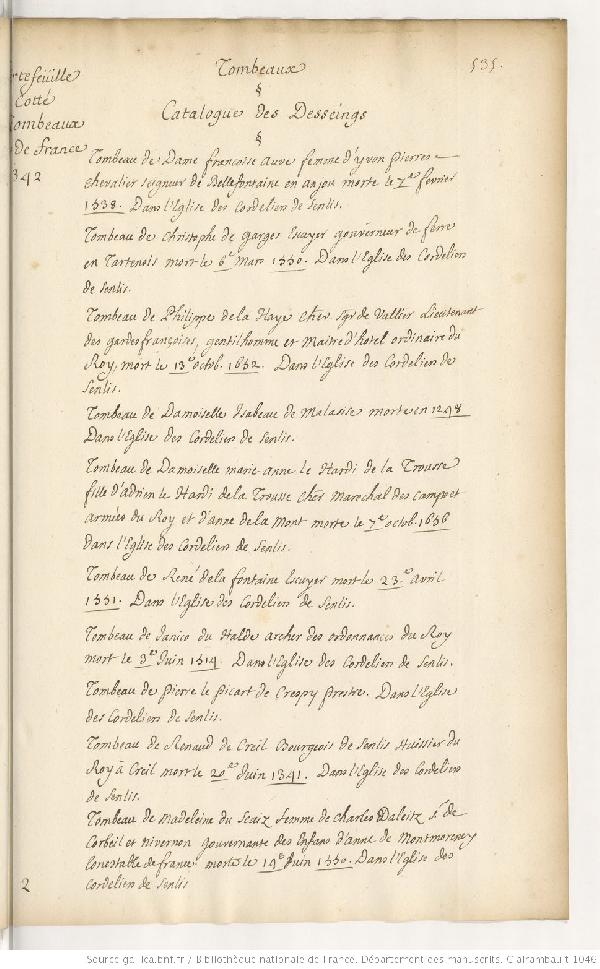 Tombeaux
535.
§
Catalogue des Desseings
§
rtefeüille
Cotté
ombeaux
de france
342
Tombeau de Dame francoise auve femme d'yvon pierres
chevalier seigneur de Bellefontaine en anjou morte le 7.e fevrier
1538. Dans l'Eglise des Cordelien de Senlis.
Tombeau de Christophe de Garges Escuyer gouverneur de fere
en Tartenois mort le 6.e Mars 1550. Dans l'Eglise des Cordelien
de Senlis.
Tombeau de Philippe de la Haye cher sgr de Vallier Lieutenant
des gardes françoises, gentilhomme et Maitre d'hotel ordinaire du
Roy, mort le 13.e octob. 1652. Dans l'Eglise des Cordelien de
Senlis.
Tombeau de Damoiselle Isabeau de Malasise morte en 1298
Dans l'Eglise des Cordelien de Senlis.
Tombeau de Damoiselle marie-anne le Hardi de la Trousse
fille d'adrien le Hardi de la Trousse cher marechal des camps et
armées du Roy et d'anne de la Mont morte le 7.e octob. 1656
dans l'Eglise des Cordelien de Senlis.
Tombeau de René de la fontaine Escuyer mort le 23.e avril
1551. Dans l'Eglise des Cordelien de Senlis.
Tombeau de Janico du Halde archer des ordonnances du Roy
mort le 3.e Juin 1514. Dans l'Eglise des Cordelien de Senlis.
Tombeau de pierre le picart de Crespy prestre. Dans l'Eglise
des Cordelien de Senlis.
Tombeau de Renaud de Creil Bourgeois de Senlis Huissier du
Roy à Creil mort le 20.e Juin 1341. Dans l'Eglise des Cordelien
de Senlis.
Tombeau de Madeleine du femme de charles de
Corbeil et nivernon gouvernante des Enfans d'anne de Montmorency
Conestable de france morte le 19.e Juin 1550. Dans l'Eglise des
Cordelien de Senlis
2
Source gallica.bnf.fr / Bibliothèque nationale de France. Département des manuscrits. Clairambault 1046